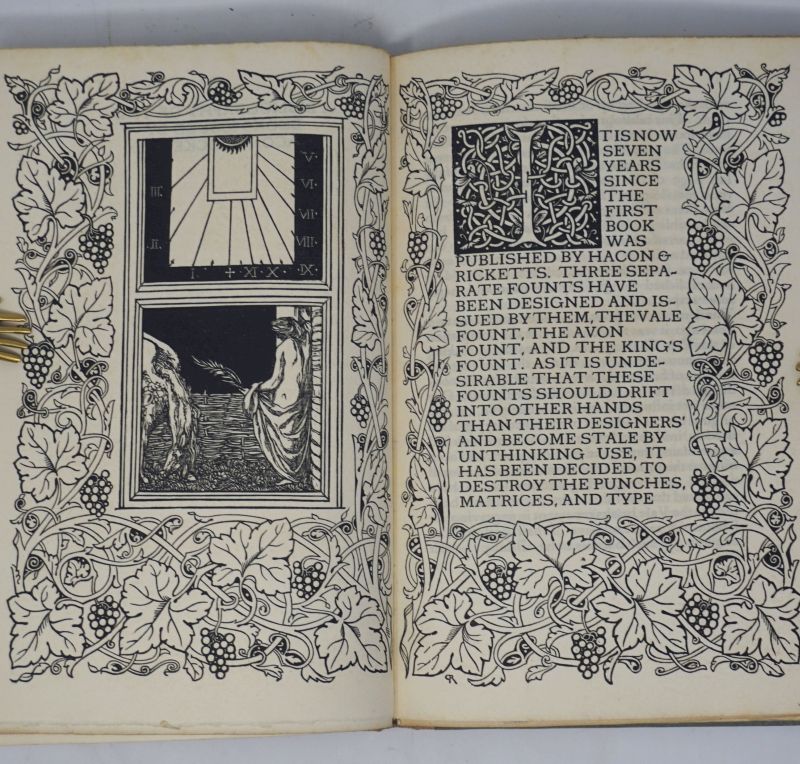 V·
III·
VI·
VII·
II·
VIII·
I + XI· X· IX·
IT IS NOW
SEVEN
YEARS
SINCE
THE
FIRST
BOOK
WAS
PUBLISHED BY HACON &
RICKETTS. THREE SEPA-
RATE FOUNTS HAVE
BEEN DESIGNED AND IS-
SUED BY THEM, THE VALE
FOUNT, THE AVON
FOUNT, AND THE KING'S
FOUNT. AS IT IS UNDE-
SIRABLE THAT THESE
FOUNTS SHOULD DRIFT
INTO OTHER HANDS
THAN THEIR DESIGNERS'
AND BECOME STALE BY
UNTHINKING USE, IT
HAS BEEN DECIDED TO
DESTROY THE PUNCHES,
MATRICES, AND TYPE
CR